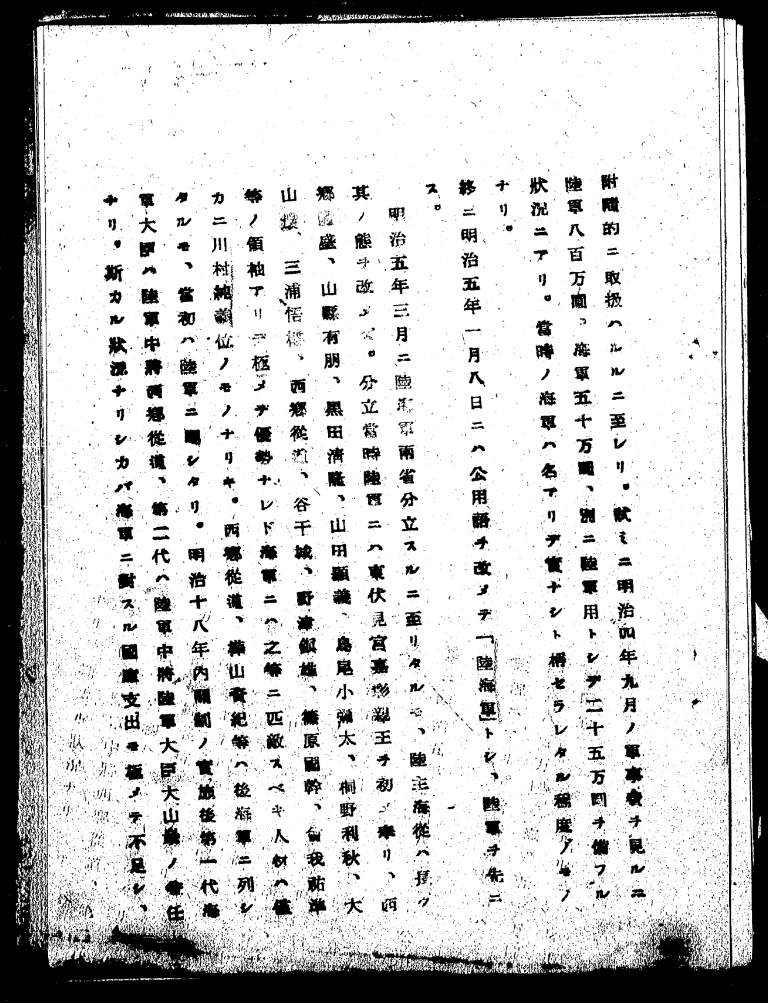 附隨的ニ取扱ハルルニ至レリ。試ミニ明治四年九月ノ軍事費ヲ見ルニ
陸軍八百万圓、海軍五十万圓、別ニ陸軍用トシテ二十五万圓ヲ備フル
狀況ニアリ。當時ノ海軍ハ名アリテ實ナシト稱セラレタル程度ノモノ
ナリ。
終ニ明治五年一月八日ニハ公用語ヲ改メテ「陸海軍」トシ、陸軍ヲ先ニ
ス。
明治五年三月ニ陸海軍兩省分立スルニ至リタルモ、陸主海從ハ長ク
其ノ態ヲ改メズ。分立當時陸軍ニハ東伏見宮嘉彰親王ヲ初メ奉リ、西
鄕隆盛、山縣有朋、黑田淸隆、山田顯義、鳥尾小彌太、桐野利秋、大
山巖、三浦悟樓、西鄕從道、谷干城、野津鎭雄、篠原國幹、曾我祐準
等ノ領袖アリテ極メテ優勢ナレド海軍ニハ之等ニ匹敵スベキ人材ハ僅
カニ川村純義位ノモノナリキ。西鄕從道、樺山資紀等ハ後海軍ニ列シ
タルモ、當初ハ陸軍ニ屬シタリ。明治十八年內閣制ノ實施後第一代海
軍大臣ハ陸軍中將西鄕從道、第二代ハ陸軍中將陸軍大臣大山巖ノ兼任
ナリ。斯カル狀況ナリシカバ海軍ニ對スル國庫支出モ極メテ不足シ、